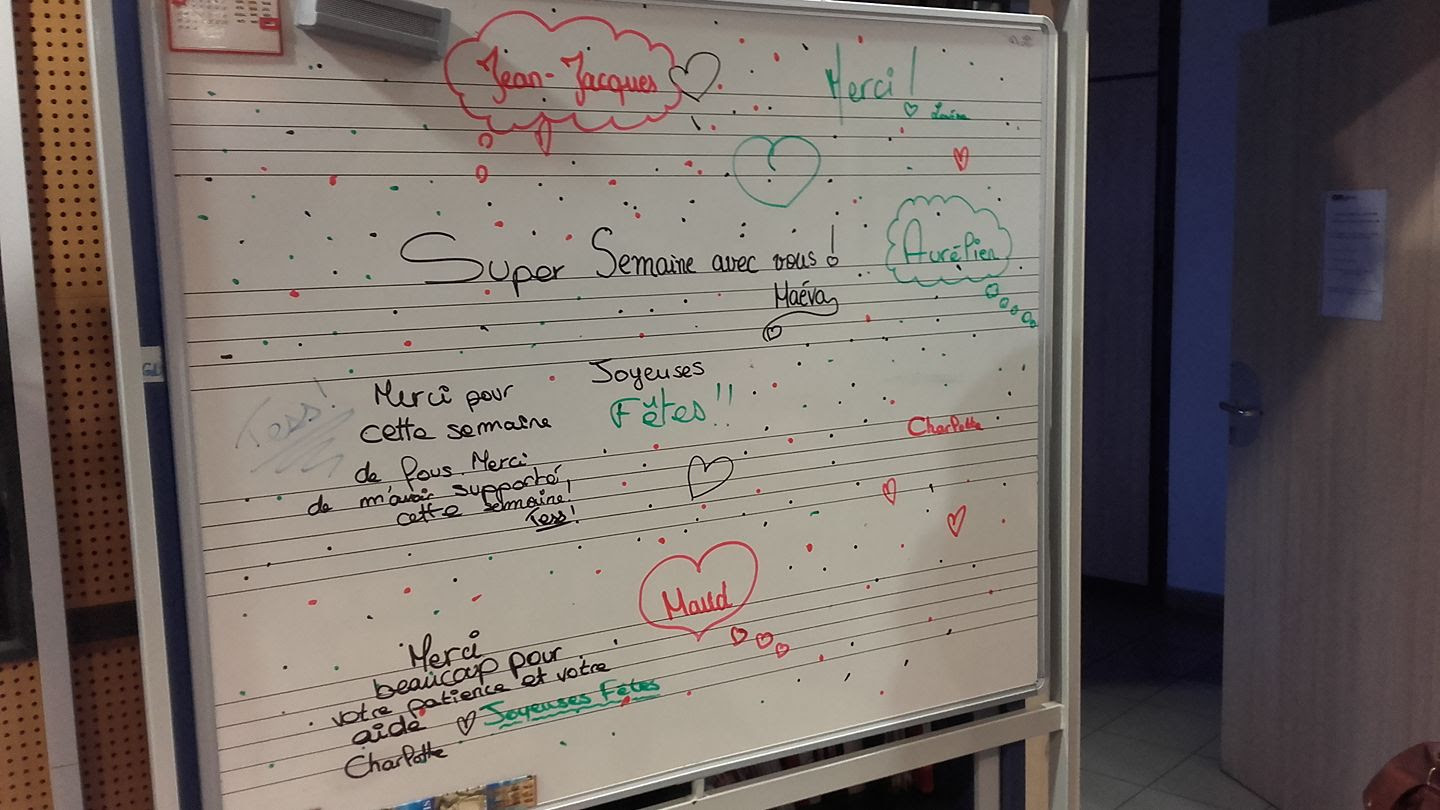 Jean-Jacques
Merci !
Super Semaine avec vous !
Aurélien
Maéva
Merci pour
cette semaine
Joyeuses
Fêtes !!
Tess !
Charlotte
de fous. Merci
de m'avoir supporté,
cette semaine !
Tess !
Maud
Merci
beaucoup pour
votre patience et votre
aide
Joyeuses Fêtes
Charlotte